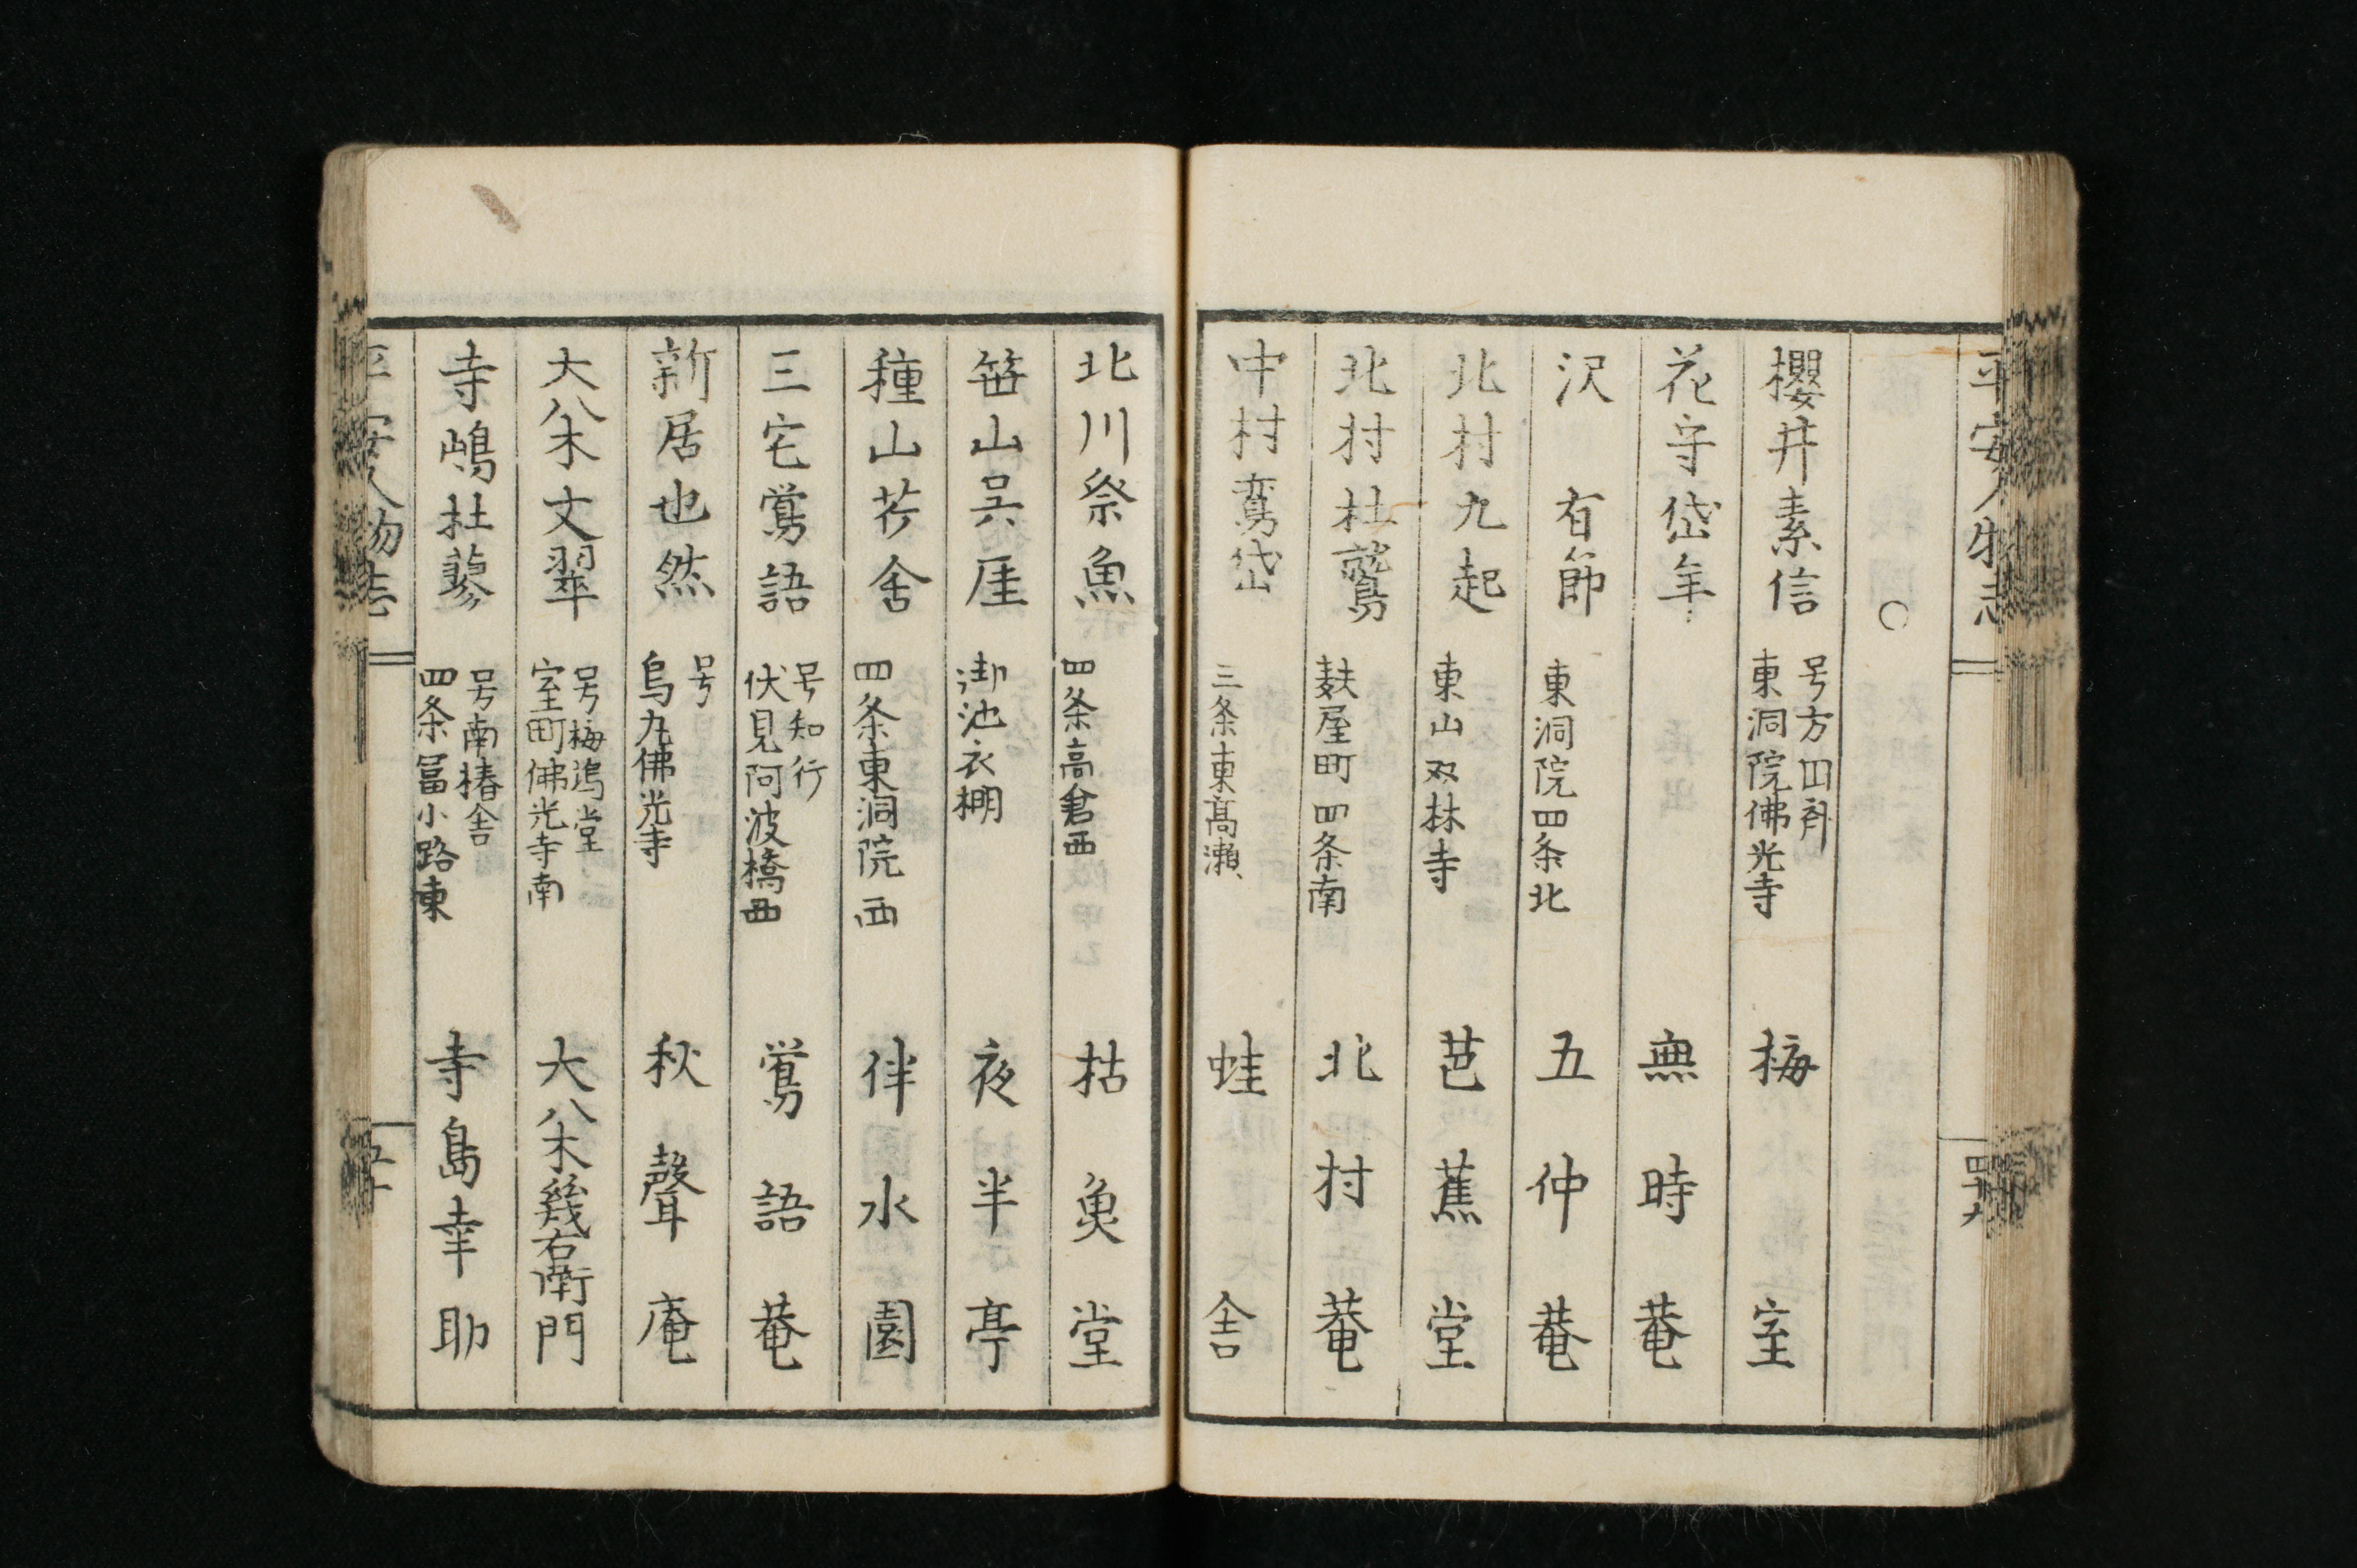 平安人物志
四十九
○
櫻井素信 号方四斎 東洞院佛光寺 梅室
花守岱年 無時菴
沢有節 東洞院四条北 五仲菴
北村九起 東山双林寺 芭蕉堂
北村杜鵞 麸屋町四条南 北村菴
中村鸞岱 三条東髙瀬 蛙舎
北川祭魚 四条高倉西 枯魚堂
笹山呉厓 御池衣棚 夜半亭
種山芥舎 四条東洞院西 伴水園
三宅鶯語 号知行 伏見阿波橋西 鶯語菴
新居也然 号 烏丸佛光寺 秋聲庵
大八木丈翠 号梅鴻堂 室町佛光寺南 大八木幾右衛門
寺嶋杜蓼 号南椿舎 四条冨小路東 寺島幸助
平安人物志
五十